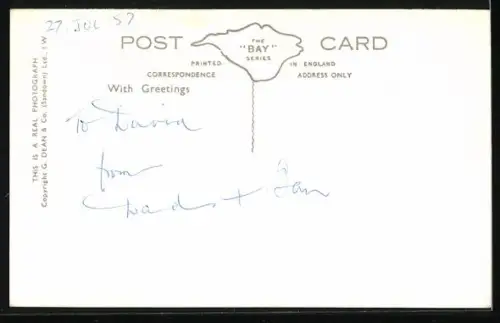 27 JUL 57
POST CARD
THE
"BAY"
SERIES
PRINTED IN ENGLAND
CORRESPONDENCE ADDRESS ONLY
With Greetings
THIS IS A REAL PHOTOGRAPH
Copyright G. DEAN & Co. (Sandown) Ltd., I.W.
To David
from
+ Ian